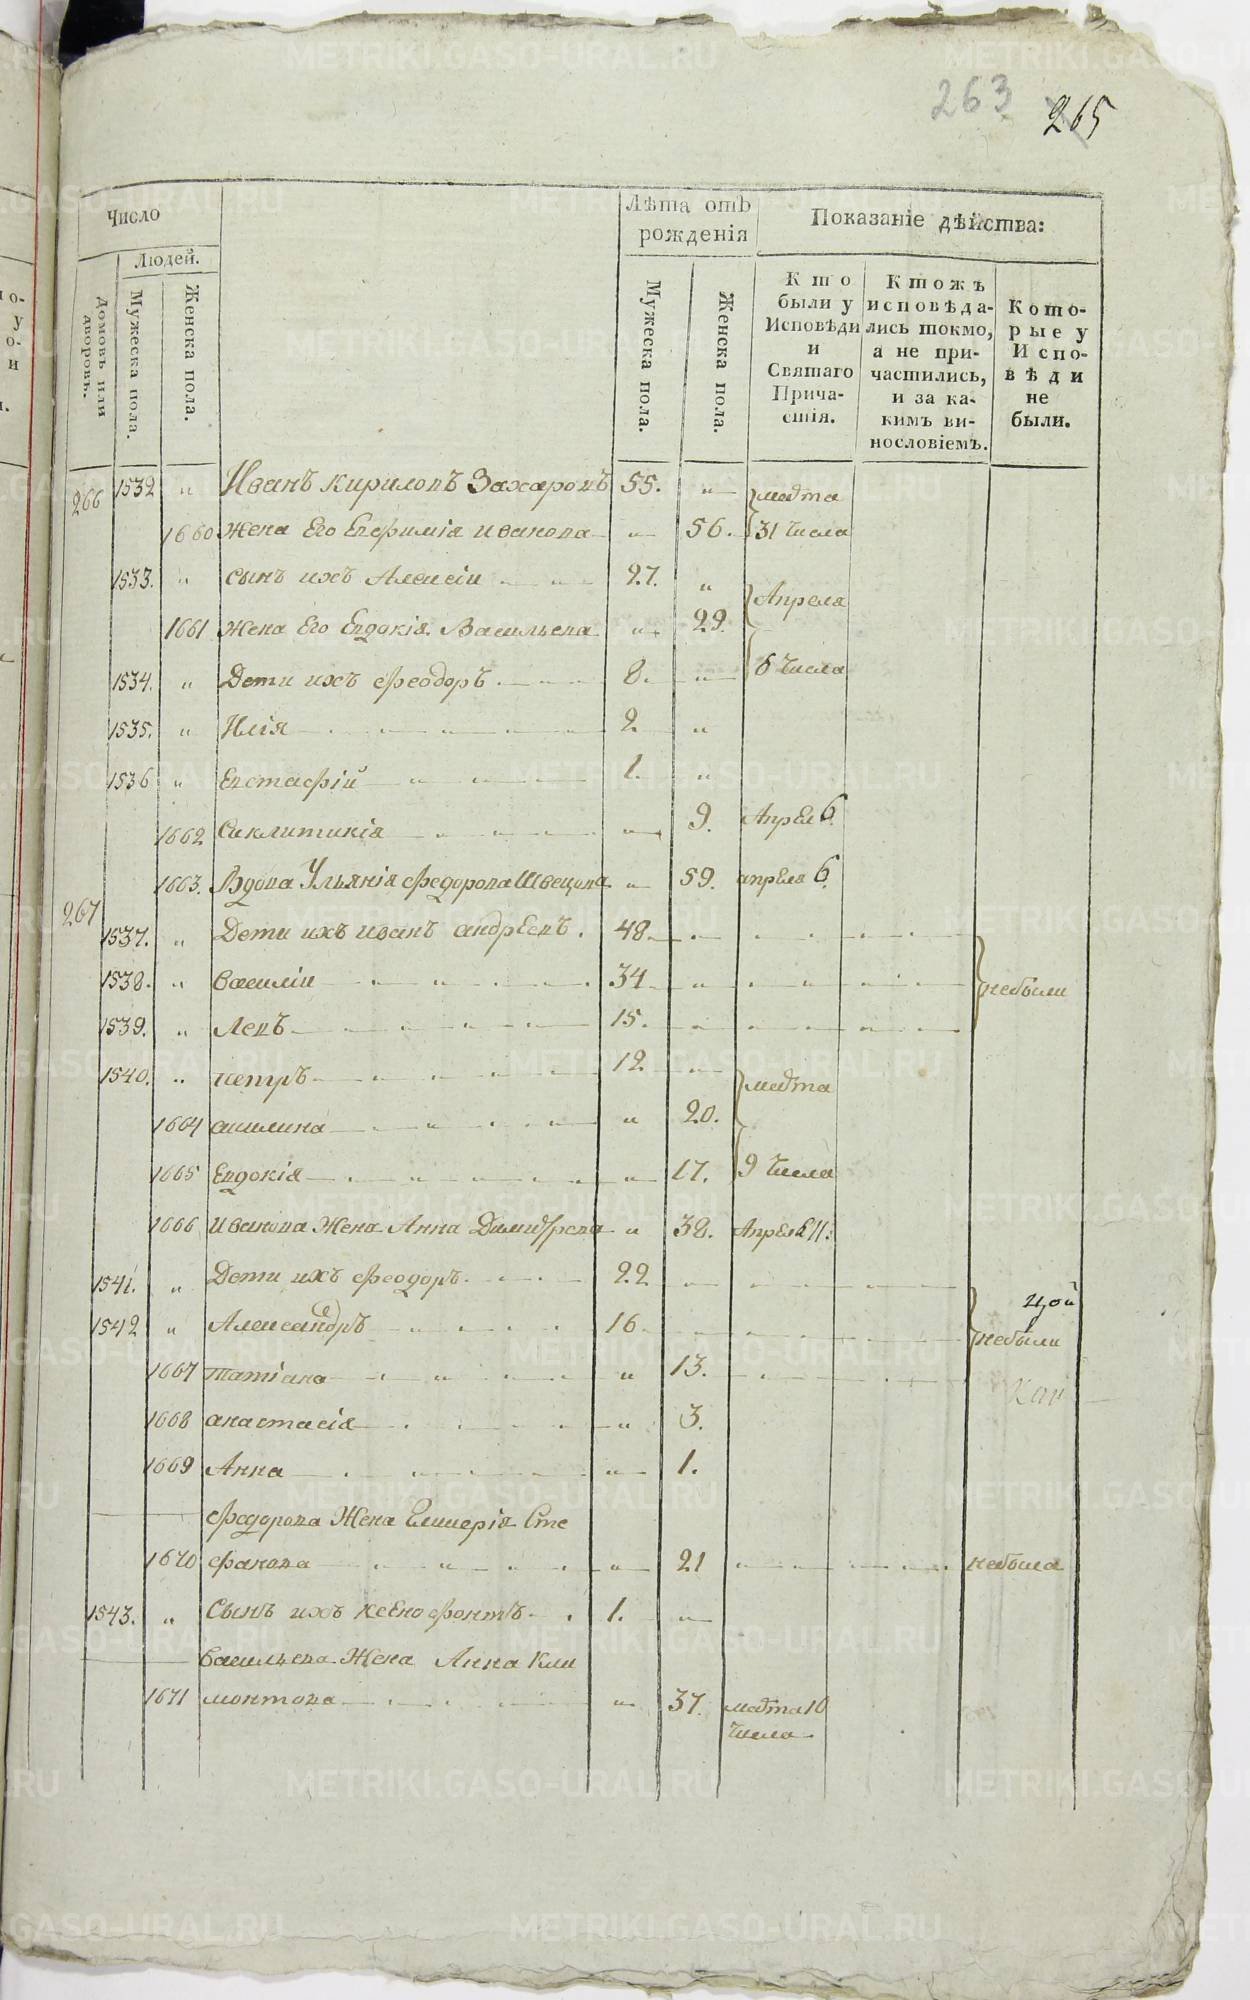 263 265
Число
Людей.
домовъ или дворовъ.
Мужеска пола.
Женска пола.
Лѣта отъ рожденія
Мужеска пола.
Женска пола.
Показаніе дѣйства:
Кто были у Исповѣди и Святаго Прича-стія.
Ктожъ исповѣда-лись токмо, а не при-частились, и за ка-кимъ ви-нословіемъ.
Кото-рые у Испо-вѣди не были.
266 1532 „ Иванъ Кириловъ Захаровъ 55. „ марта
1660 Жена Его Евфимія Иванова „ 56. 31 числа
1533. „ сынъ ихъ Алексіи 27. „
Апреля
1661 жена Его Евдокія Васильева „ 29.
1534. „ Дети ихъ Феодоръ 8. „ 6 числа
1535. „ Илія 2 „
1536 „ Евстафій 1. „
1662 Сиклитикія „ 9. Апреля 6
1663. Вдова Ульянія Федорова Швецова „ 59. апреля 6.
267
1537. „ Дети ихъ иванъ андреевъ. 48. „
1538. „ василіи 34 „ небыли
1539. „ Левъ 15. „
1540. „ петръ 12 „
марта
1664 акилина „ 20.
1665 Евдокія „ 17. 9 числа
1666 Иванова Жена Анна Димитрева „ 38. Апреля 11.
1541. „ Дети ихъ феодоръ 22 „
1542 „ Александръ 16. небыли
1667 татіана „ 13.
1668 анастасія „ 3.
1669 Анна „ 1.
Федорова Жена Гликерія Сте
1670 фанова „ 21 небыла
1543. „ Сынъ ихъ ксенофонтъ 1. „
васильева Жена Анна Кли
1671 монтова „ 37. марта 10
числа
METRIKI.GASO-URAL.RU